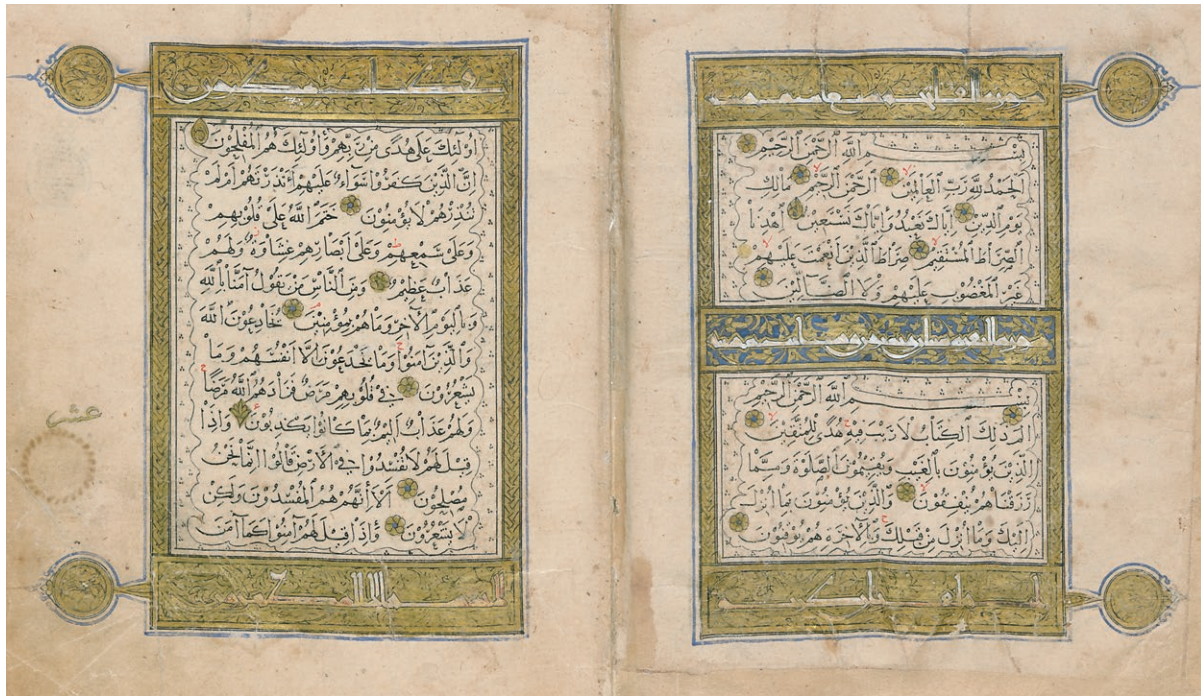 بِسْمِ اللَّهِ الرَّحْمَٰنِ الرَّحِيمِ
اَلْحَمْدُ لِلَّهِ رَبِّ الْعَالَمِينَ الرَّحْمَٰنِ الرَّحِيمِ مَالِكِ
يَوْمِ الدِّينِ إِيَّاكَ نَعْبُدُ وَإِيَّاكَ نَسْتَعِينُ اِهْدِنَا
الصِّرَاطَ الْمُسْتَقِيمَ صِرَاطَ الَّذِينَ أَنْعَمْتَ عَلَيْهِمْ
غَيْرِ الْمَغْضُوبِ عَلَيْهِمْ وَلَا الضَّالِّينَ
بِسْمِ اللَّهِ الرَّحْمَٰنِ الرَّحِيمِ
الم ذَلِكَ الْكِتَابُ لَا رَيْبَ فِيهِ هُدًى لِلْمُتَّقِينَ
الَّذِينَ يُؤْمِنُونَ بِالْغَيْبِ وَيُقِيمُونَ الصَّلٰوةَ وَمِمَّا
رَزَقْنَاهُمْ يُنْفِقُونَ وَالَّذِينَ يُؤْمِنُونَ بِمَا أُنْزِلَ
إِلَيْكَ وَمَا أُنْزِلَ مِنْ قَبْلِكَ وَبِالْآخِرَةِ هُمْ يُوقِنُونَ
إنه لقرآن كريم
في كتاب مكنون
أُولَٰئِكَ عَلَى هُدًى مِنْ رَبِّهِمْ وَأُولَٰئِكَ هُمُ الْمُفْلِحُونَ
إِنَّ الَّذِينَ كَفَرُوا سَوَاءٌ عَلَيْهِمْ أَأَنْذَرْتَهُمْ أَمْ لَمْ
تُنْذِرْهُمْ لَا يُؤْمِنُونَ خَتَمَ اللَّهُ عَلَى قُلُوبِهِمْ
وَعَلَى سَمْعِهِمْ وَعَلَى أَبْصَارِهِمْ غِشَاوَةٌ وَلَهُمْ
عَذَابٌ عَظِيمٌ وَمِنَ النَّاسِ مَنْ يَقُولُ آمَنَّا بِاللَّهِ
وَبِالْيَوْمِ الْآخِرِ وَمَا هُمْ بِمُؤْمِنِينَ يُخَادِعُونَ اللَّهَ
وَالَّذِينَ آمَنُوا وَمَا يَخْدَعُونَ إِلَّا أَنْفُسَهُمْ وَمَا
يَشْعُرُونَ فِي قُلُوبِهِمْ مَرَضٌ فَزَادَهُمُ اللَّهُ مَرَضًا
وَلَهُمْ عَذَابٌ أَلِيمٌ بِمَا كَانُوا يَكْذِبُونَ وَإِذَا
قِيلَ لَهُمْ لَا تُفْسِدُوا فِي الْأَرْضِ قَالُوا إِنَّمَا نَحْنُ
مُصْلِحُونَ أَلَا إِنَّهُمْ هُمُ الْمُفْسِدُونَ وَلَكِنْ
لَا يَشْعُرُونَ وَإِذَا قِيلَ لَهُمْ آمِنُوا كَمَا آمَنَ
لا يمسه إلا المطهرون
عشر